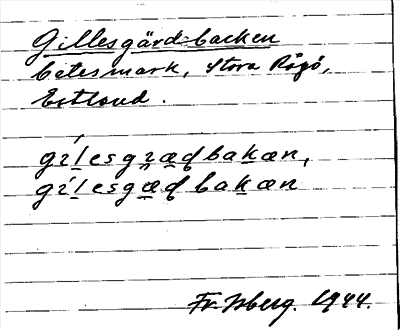 Gillesgärd-backen
betesmark, Stora Rågö,
Estland.
gílesgꝛæɖbakæn,
gílesgæɖbakæn
Fr. Isberg. 1944.